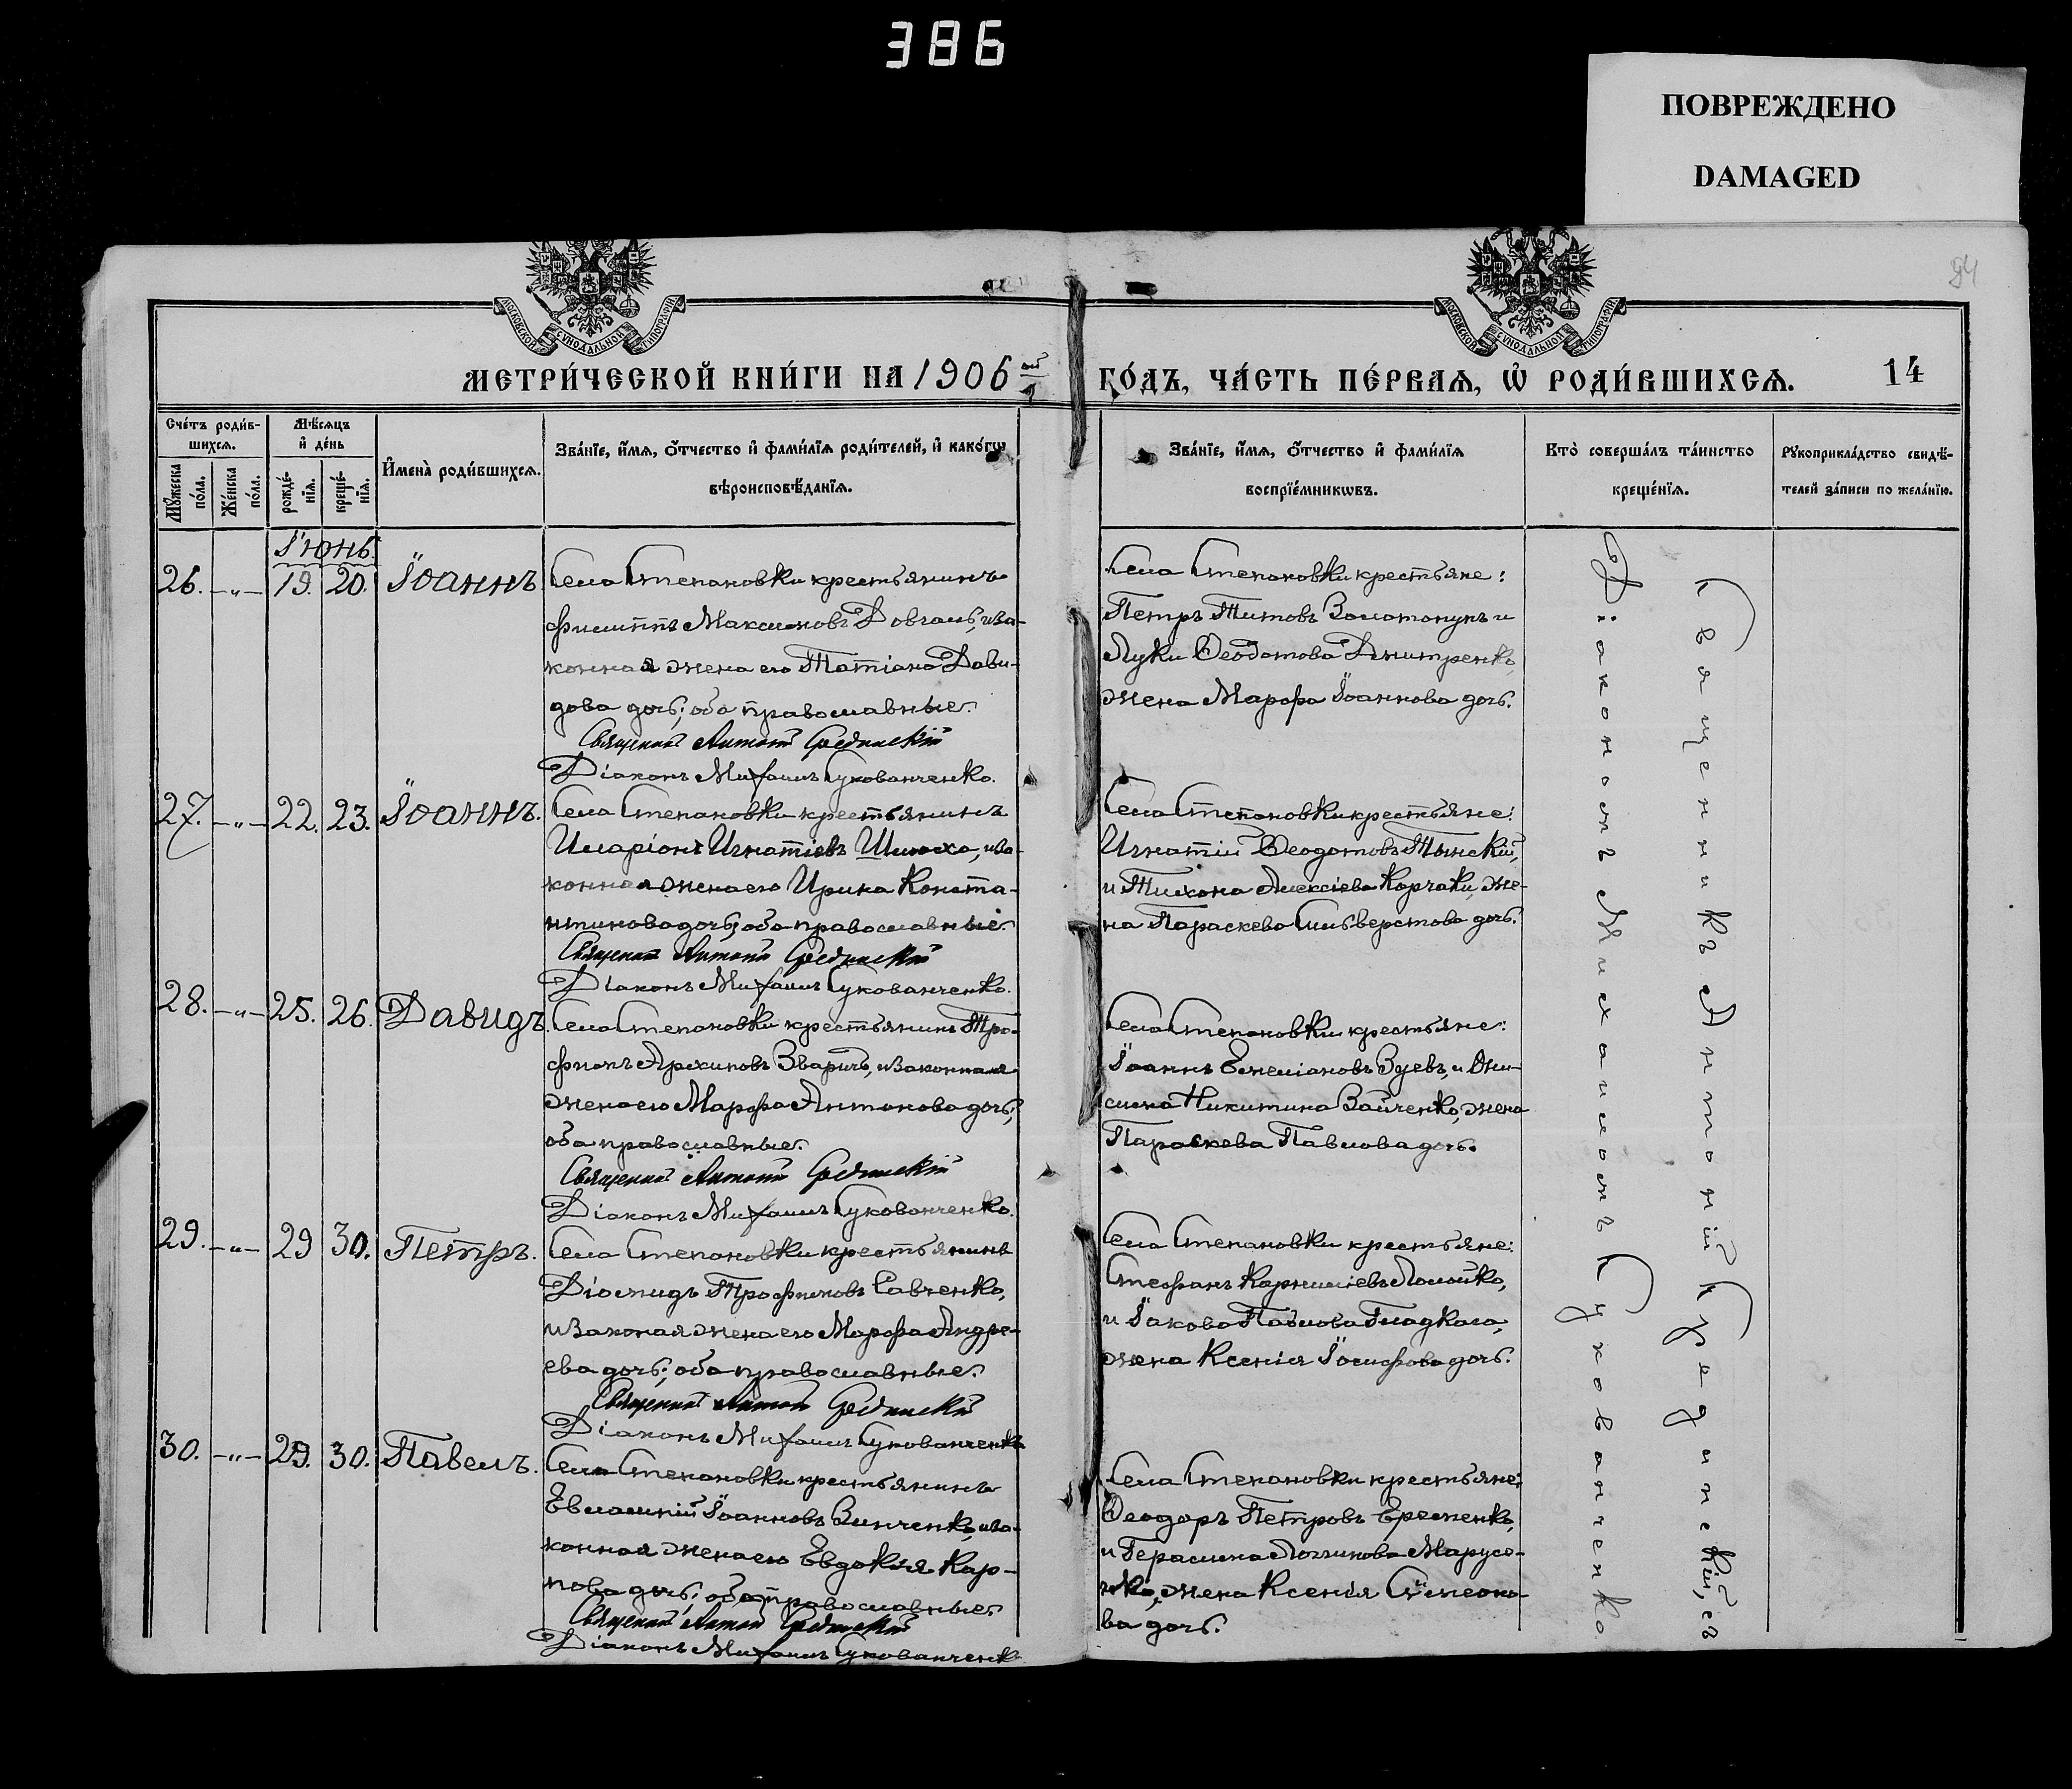 386
ПОВРЕЖДЕНО
DAMAGED
94
МОСКОВСКОЙ СѴНОДАЛЬНОЙ ТИПОГРАФІИ
МОСКОВСКОЙ СѴНОДАЛЬНОЙ ТИПОГРАФІИ
МЕТРИ́ЧЕСКОЙ КНИ́ГИ НА 1906 ой
ГО́ДЪ, ЧА́СТЬ ПЕ́РВАЯ, Ѡ҆ РОДИ́ВШИХСЯ. 14
Сче́тъ роди́в-
шихся.
Мѣ́сяцъ
и҆ де́нь
Мꙋ́жеска по́ла.
Же́нска по́ла.
рожде́-нїя.
креще́-нїя.
И҆мена̀ роди́вшихся.
Зва́нїе, и҆́мя, ѻ҆́тчество и҆ фами́лїя роди́телей, и҆ како́гѡ
вѣроисповѣ́данїя.
Зва́нїе, и҆́мя, ѻ҆́тчество и҆ фами́лїя
воспрїе́мникѡвъ.
Кто̀ соверша́лъ та́инство
креще́нїя.
Рꙋкоприкла́дство свидѣ́-
телей за́писи по жела́нїю.
Іюнь.
26. -"- 19. 20. Іоаннъ.
Села Степановки крестьянинъ
Филиппъ Максимовъ Довгаль, и за-
конная жена его Татіана Дави-
дова дочь; оба православные.
Священникъ Антоній Срединскій
Діаконъ Михаилъ Сукованченко.
Села Степановки крестьяне:
Петръ Титовъ Золотопупъ и
Луки Ѳеодотова Дмитренко,
жена Марфа Іоаннова дочь.
27. -"- 22. 23. Іоаннъ.
Села Степановки крестьянинъ
Иларіонъ Игнатіевъ Шило, и за-
конная жена его Ирина Конста-
нтинова дочь; оба православные.
Священникъ Антоній Срединскій
Діаконъ Михаилъ Сукованченко.
Села Степановки крестьяне:
Игнатій Ѳеодотовъ Тынскій,
и Тихона Алексіева Корчаки, же-
на Параскева Сильверстова дочь.
28. -"- 25. 26. Давидъ.
Села Степановки крестьянинъ Тро-
фимъ Архиповъ Зваричъ, и законная
жена его Марфа Антонова дочь;
оба православные.
Священникъ Антоній Срединскій
Діаконъ Михаилъ Сукованченко.
Села Степановки крестьяне:
Іоаннъ Емеліановъ Зуевъ, и Они-
сима Никитина Зайченко, жена
Параскева Павлова дочь.
29. -"- 29 30. Петръ.
Села Степановки крестьянинъ
Діомидъ Трофимовъ Савченко,
и законая жена его Марфа Андре-
ева дочь; оба православные.
Священникъ Антоній Срединскій
Діаконъ Михаилъ Сукованченко
Села Степановки крестьяне:
Стефанъ Корниліевъ Ломойко,
и Іакова Павлова Гладкаго,
жена Ксенія Іосифова дочь.
30. -"- 29. 30. Павелъ.
Села Степановки крестьянинъ
Евлампій Іоанновъ Зинченко, и за-
конная жена его Евдокія Кар-
пова дочь; оба православные.
Священникъ Антоній Срединскій
Діаконъ Михаилъ Сукованченк
Села Степановки крестьяне:
Ѳеодоръ Петровъ Еременко,
и Герасима Логгинова Марусе-
чко, жена Ксенія Симеоно-
ва дочь.
Священникъ Антоній Срединскій, съ
Діакономъ Михаиломъ Сукованченко.